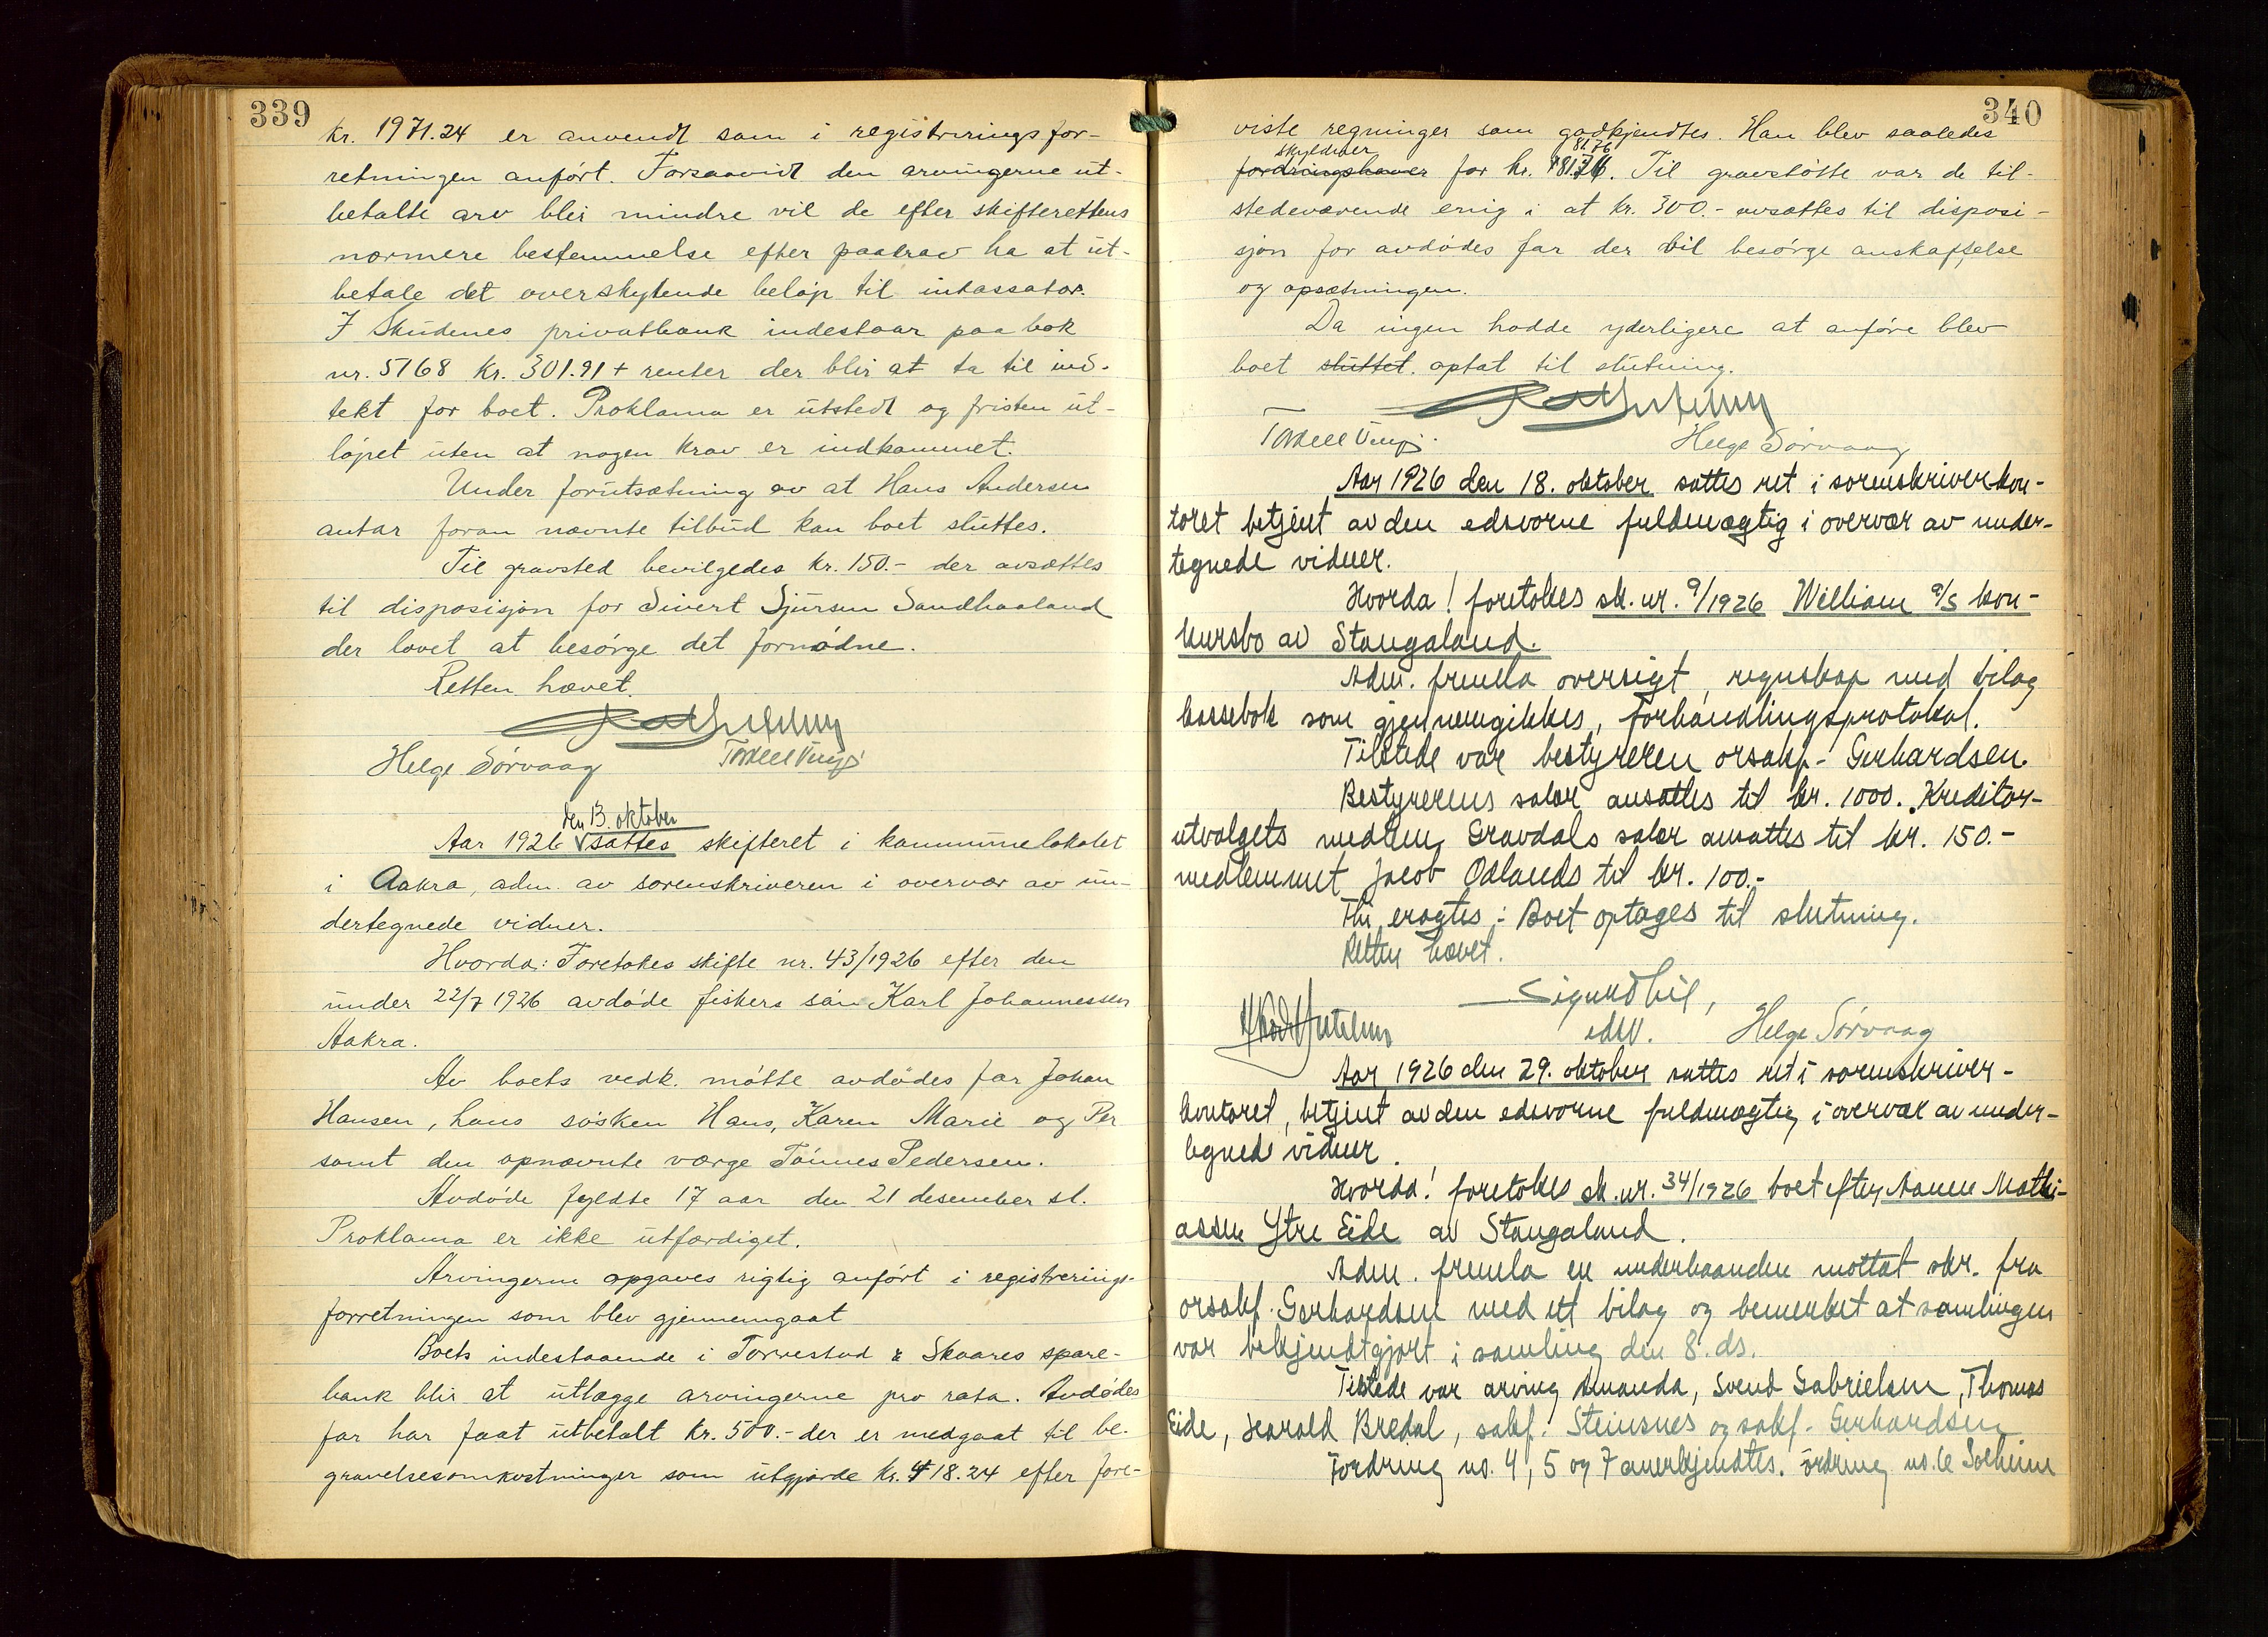 339
kr. 1971.24 er anvendt som i registreringsfor-
retningen anført. Forsaavidt den arvingerne ut-
betalte arv blir mindre vil de efter skifterettens
nærmere bestemmelse efter paakrav ha at ut-
betale det overskytende beløp til inkassator.
I Skudenes privatbank indestaar paa bok
nr. 5768 kr. 301.91 + renter der blir at ta til ind-
tekt for boet. Proklama er utstedt og fristen ut-
løpet uten at nogen krav er indkommet.
Under forutsætning av at Hans Andersen
antar foran nævnte tilbud kan boet sluttes.
Til gravsted bevilgedes kr. 150.- der avsættes
til disposisjon for Sivert Sjursen Sandhaaland
der lovet at besørge det fornødne.
Retten hævet.
Helge Sørvaag
den 13. oktober
Aar 1926 sattes skifteret i kommunelokalet
i Aakra, adm. av sorenskriveren i overvær av un-
dertegnede vidner.
Hvorda: Foretokes skifte nr. 43/1926 efter den
under 22/7 1926 avdøde fiskers søn Karl Johannessen
Aakra.
Av boets vedk. møtte avdødes far Johan
Hansen, hans søsken Hans, Karen Marie og Per
samt den opnævnte værge Tønnes Pedersen.
Avdøde fyldte 17 aar den 21 desember sl.
Proklama er ikke utfærdiget.
Arvingerne opgaves rigtig anført i registrerings-
forretningen som blev gjennemgaat
Boets indestaaende i Torvestad & Skaares spare-
bank blir at utlægge arvingerne pro rata. Avdødes
far har faat utbetalt kr. 500.- der er medgaat til be-
gravelsesomkostninger som utgjorde kr. 418.24 efter fore-
340
viste regninger som godkjendtes. Han blev saaledes
skyldner 81.76
fordringshaver for kr. 81.76. Til gravstøtte var de til-
stedeværende enig i at kr. 300.- avsættes til disposi-
sjon for avdødes far der vil besørge anskaffelse
og opsætningen.
Da ingen hadde yderligere at anføre blev
boet sluttet. optat til slutning.
Helge Sørvaag
Aar 1926 den 18. oktober sattes ret i sorenskriverkon-
toret betjent av den edsvorne fuldmægtig i overvær av under-
tegnede vidner.
Hvorda! foretokes sk. nr. 9/1926 William a/s kon-
kursbo av Stangaland.
Adm. fremla oversigt, regnskap med bilag
kassebok som gjennemgikkes, forhandlingsprotokol.
Tilstede var bestyreren orsakf. Gerhardsen.
Bestyrerens salær ansattes til kr. 1000. Kreditor-
utvalgets medlem Gravdals salær ansattes til kr. 150.-
medlemmet Jacob Odlands til kr. 100.-
Thi eragtes: Boet optages til slutning.
Retten hævet.
edsv. Helge Sørvaag
Aar 1926 den 29. oktober sattes ret i sorenskriver-
kontoret, betjent av den edsvorne fuldmægtig i overvær av under-
tegnede vidner.
Hvorda! foretokes sk. nr. 34/1926 boet efter Aanen Mathi-
assen Ytre Eide av Stangaland.
Adm. fremla en underhaanden mottat skr. fra
orsakf. Gerhardsen med ett bilag og bemerket at samlingen
var bekjendtgjort i samling den 8. ds.
Tilstede var arving Amanda, Svend Gabrielsen, Thomas
Eide, Harald Bredal, sakf. Steinsnes og sakf. Gerhardsen
Fordring no. 4, 5 og 7 anerkjendtes. ordring no. 6 Solheim